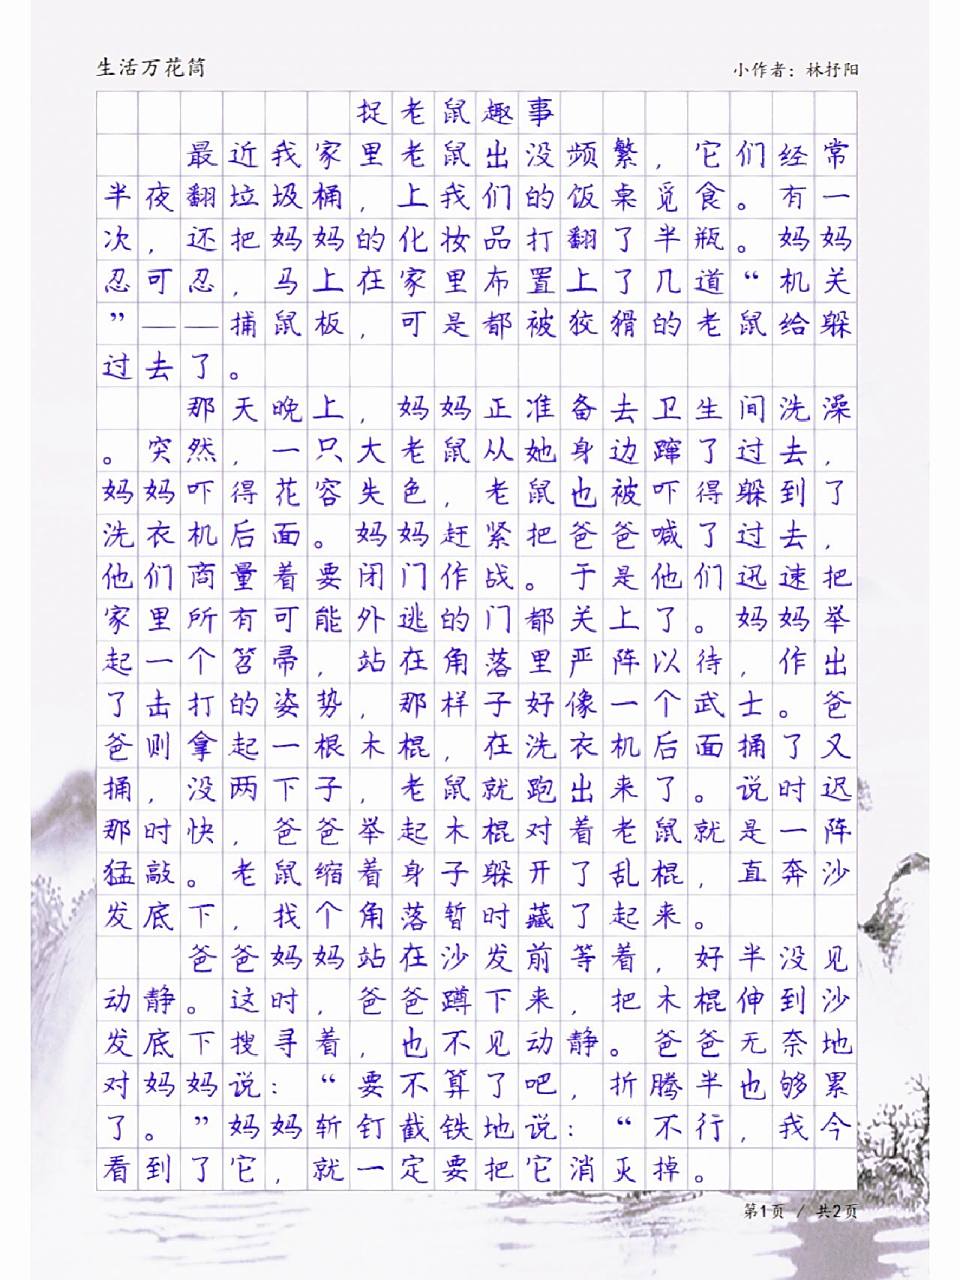 生活万花筒
小作者：林抒阳
捉老鼠趣事
最近我家里老鼠出没频繁，它们经常
半夜翻垃圾桶，上我们的饭桌觅食。有一
次，还把妈妈的化妆品打翻了半瓶。妈妈
忍可忍，马上在家里布置上了几道“机关
”——捕鼠板，可是都被狡猾的老鼠给躲
过去了。
那天晚上，妈妈正准备去卫生间洗澡
。突然，一只大老鼠从她身边蹿了过去，
妈妈吓得花容失色，老鼠也被吓得躲到了
洗衣机后面。妈妈赶紧把爸爸喊了过去，
他们商量着要闭门作战。于是他们迅速把
家里所有可能外逃的门都关上了。妈妈举
起一个笤帚，站在角落里严阵以待，作出
了击打的姿势，那样子好像一个武士。爸
爸则拿起一根木棍，在洗衣机后面捅了又
捅，没两下子，老鼠就跑出来了。说时迟
那时快，爸爸举起木棍对着老鼠就是一阵
猛敲。老鼠缩着身子躲开了乱棍，直奔沙
发底下，找个角落暂时藏了起来。
爸爸妈妈站在沙发前等着，好半没见
动静。这时，爸爸蹲下来，把木棍伸到沙
发底下搜寻着，也不见动静。爸爸无奈地
对妈妈说：“要不算了吧，折腾半也够累
了。”妈妈斩钉截铁地说：“不行，我今
看到了它，就一定要把它消灭掉。
第1页 / 共2页